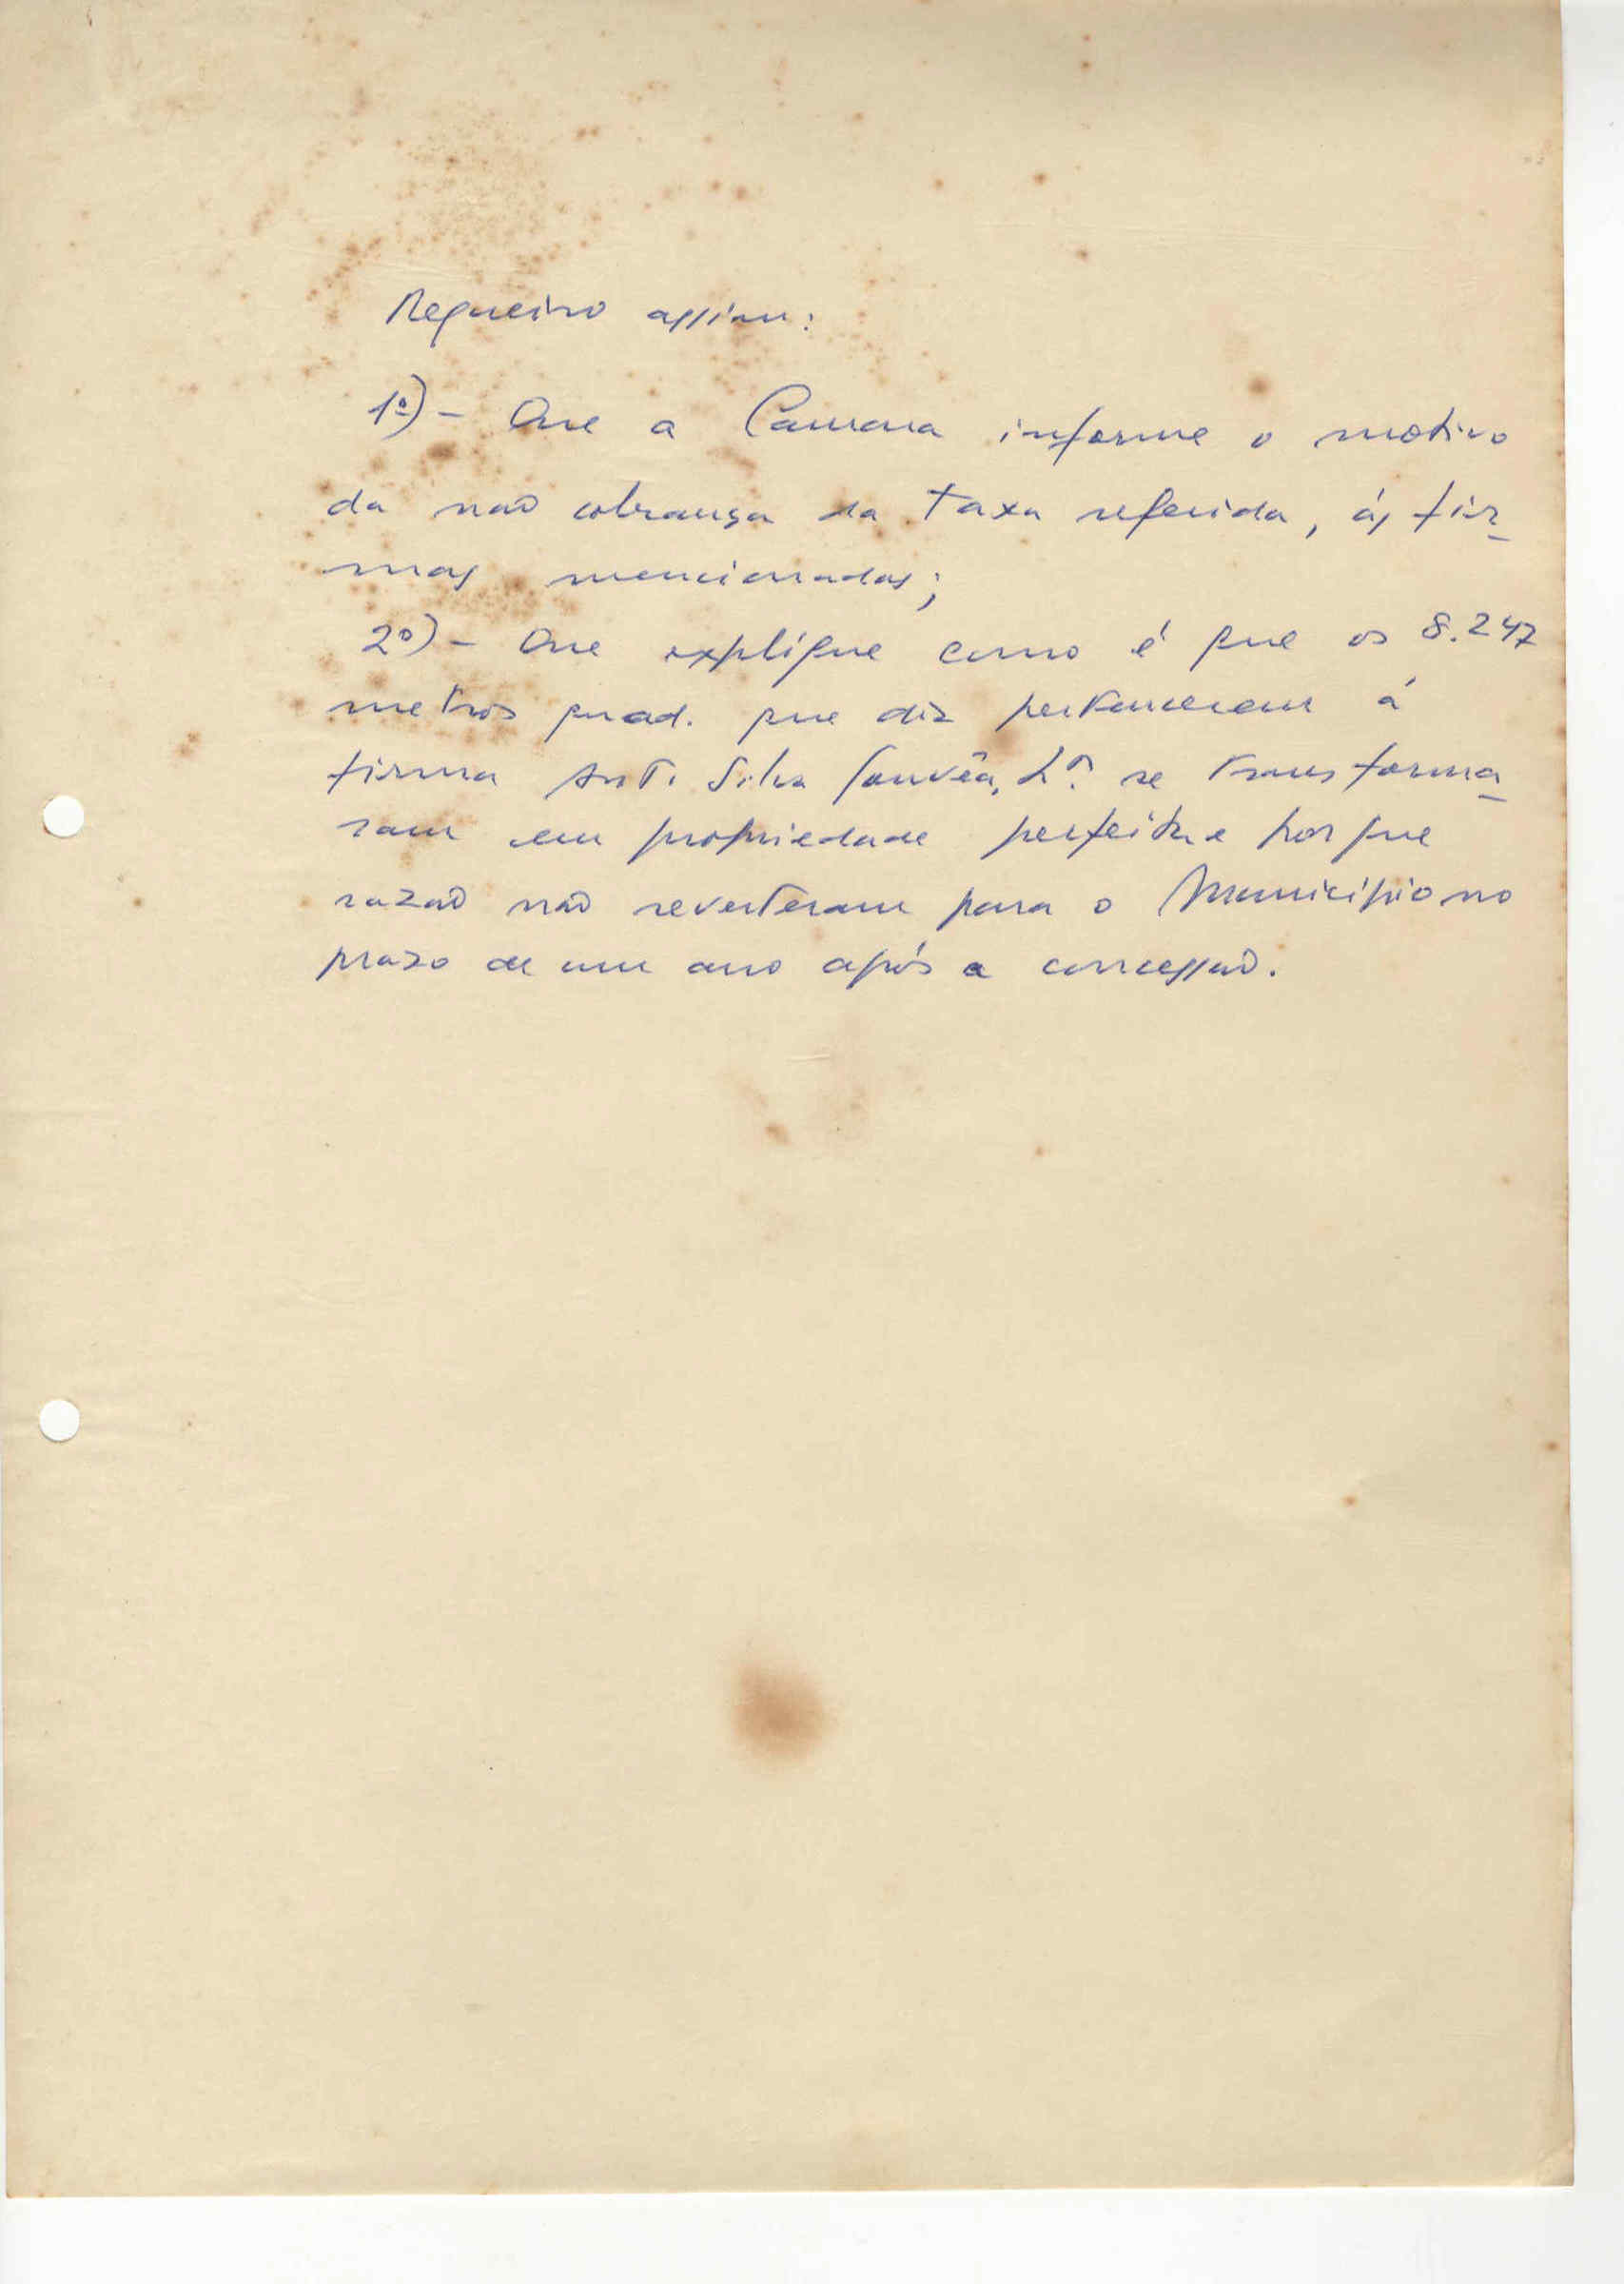 Requeiro assim:
1º) - Que a Camara informe o motivo
da não cobrança da taxa referida, ás fir-
mas mencionadas;
2º) - Que explique como é que os 8.247
metros quad. que diz pertencerem á
firma Ant. Silva Gouvêa, Lda. se transforma-
ram em propriedade perfeita e por que
razão não reverteram para o Municipio no
prazo de um ano após a concessão.